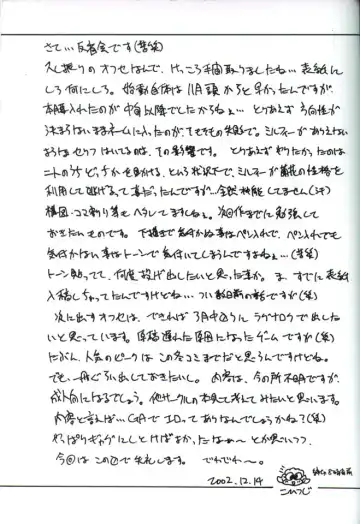 さて…反省会です(苦笑)
久し振りのオフセなんで、けっこう手間取りましたね…表紙に
しろ何にしろ。始動自体は11月頭からと早かったんですが、
本腰入れたのが中旬以降でしたからねぇ…とりあえず方向性が
決まらないままネームに入ったのが、そもそもの失敗で。ミルスーがありえない
ようなセリフはいてるのは、その影響です。とりあえず判ったのは
ニトのうちどっちかを助ける、という状況下で、ミルスーが の性格を
利用して逃げるって事だったんですが…全然神能してません(汗)
構図・コマ割り等もヘタレてますしねぇ。次回作までに勉強して
おきたいものです。下描きで気付かぬ事はペン入れで、ペン入れでも
気付かない事はトーンで気付いてしまうんですよねぇ…(苦笑)
トーン貼ってて、何度投げ出したいと思った事か。ま、すでに表紙
入稿しちゃってたんですけどね…つい数日前の話ですが(笑)
次に出すオフセは、できれば3月中ごろにラグナロクで出した
いと思っています。原稿遅れた原因になったゲームですが(笑)
たぶん、人気のピークはこの冬コミまでだと思うんですけどね。
でも、一冊ぐらい出しておきたいし。内容は、今の所不明ですが、
成人向になるでしょう。他サークルの本見て考えてみたいと思います。
内容と言えば…CGAでエロってありなんでしょうかね?(笑)
やっぱりギャグにしとけばよかったなぁ〜とか思いつつ
今回はこの辺で失礼します。でわでわ〜。
2002.12.14
こひつじ